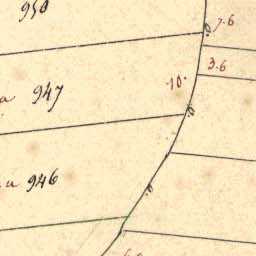 950
7.6
3.6
10.
a 947
u 946